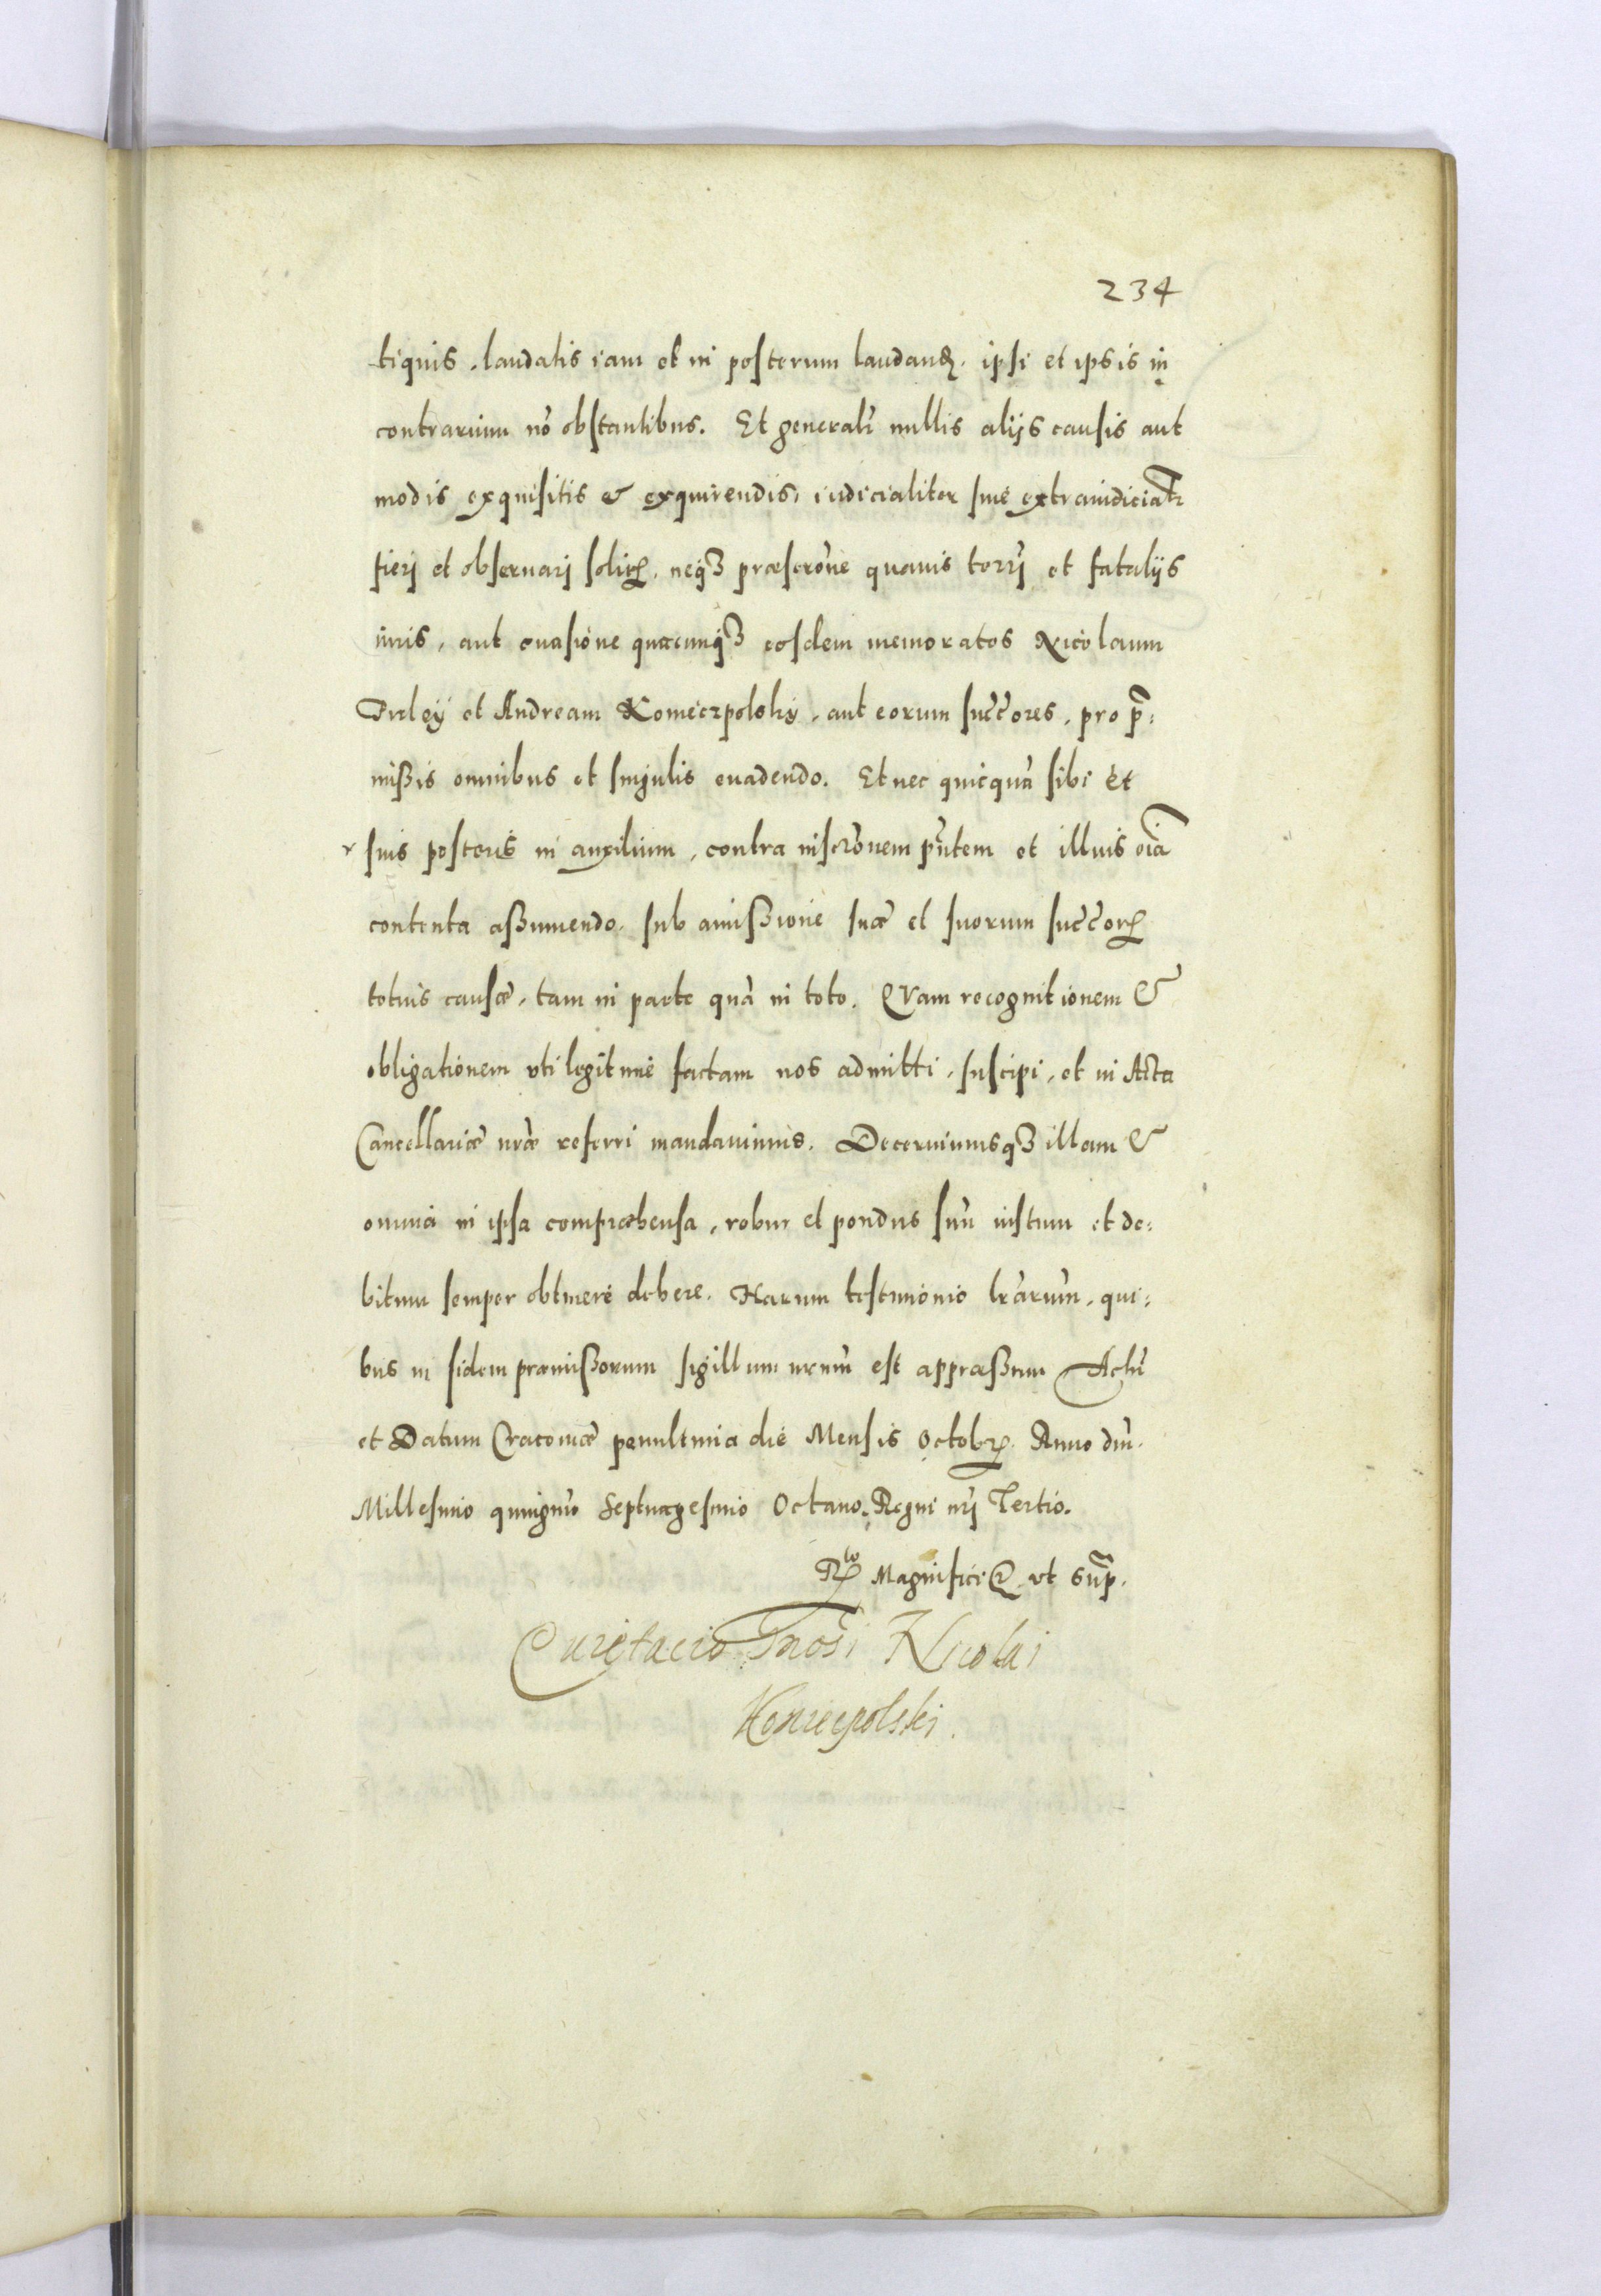 234
tiquis, laudatis iam et in posterum laudand. ipsi et ipsis in
contrarium nō obstantibus. Et generalr̄ nullis alijs causis aut
modis exquisitis & exquirendis, iudicialiter siue extraiudicialr
fieri et obseruari solit, neqꝫ præscrōne quauis terrj et fatalijs
iuris, aut euasione quacunqꝫ eosdem memoratos Nicolaum
Firley et Andream Konieczpolsky, aut eorum succ̄ores, pro p̄:
mißis omnibus et singulis euadendo. Et nec quicquā sibi et
suis posteris in auxilium, contra inscrōnem pn̄tem et illius oīa
contenta aßumendo, sub amißione suæ et suorum succ̄oꝝ
totius causæ, tam in parte quā in toto. QVam recognitionem &
obligationem vti legitime factam nos admitti, suscipi, et in Acta
Cancellariæ nr̄æ referri mandauimus. Decernimusqꝫ illam &
omnia in ipsa compræhensa, robur et pondus suū iustum et de:
bitum semper obtinere debere. Harum testimonio lr̄arum, qui:
bus in fidem præmißorum sigillum nrūm est appræßum Actū
et Datum Cracouiæ penultimia die Mensis Octobꝝ. Anno dnī.
Millesimo quingmō Septuagesimo Octauo. Regni nrī Tertio.
Rlō Magnifici & vt sup̄.
Tn̄osi Nicolai
Koniecpolski.